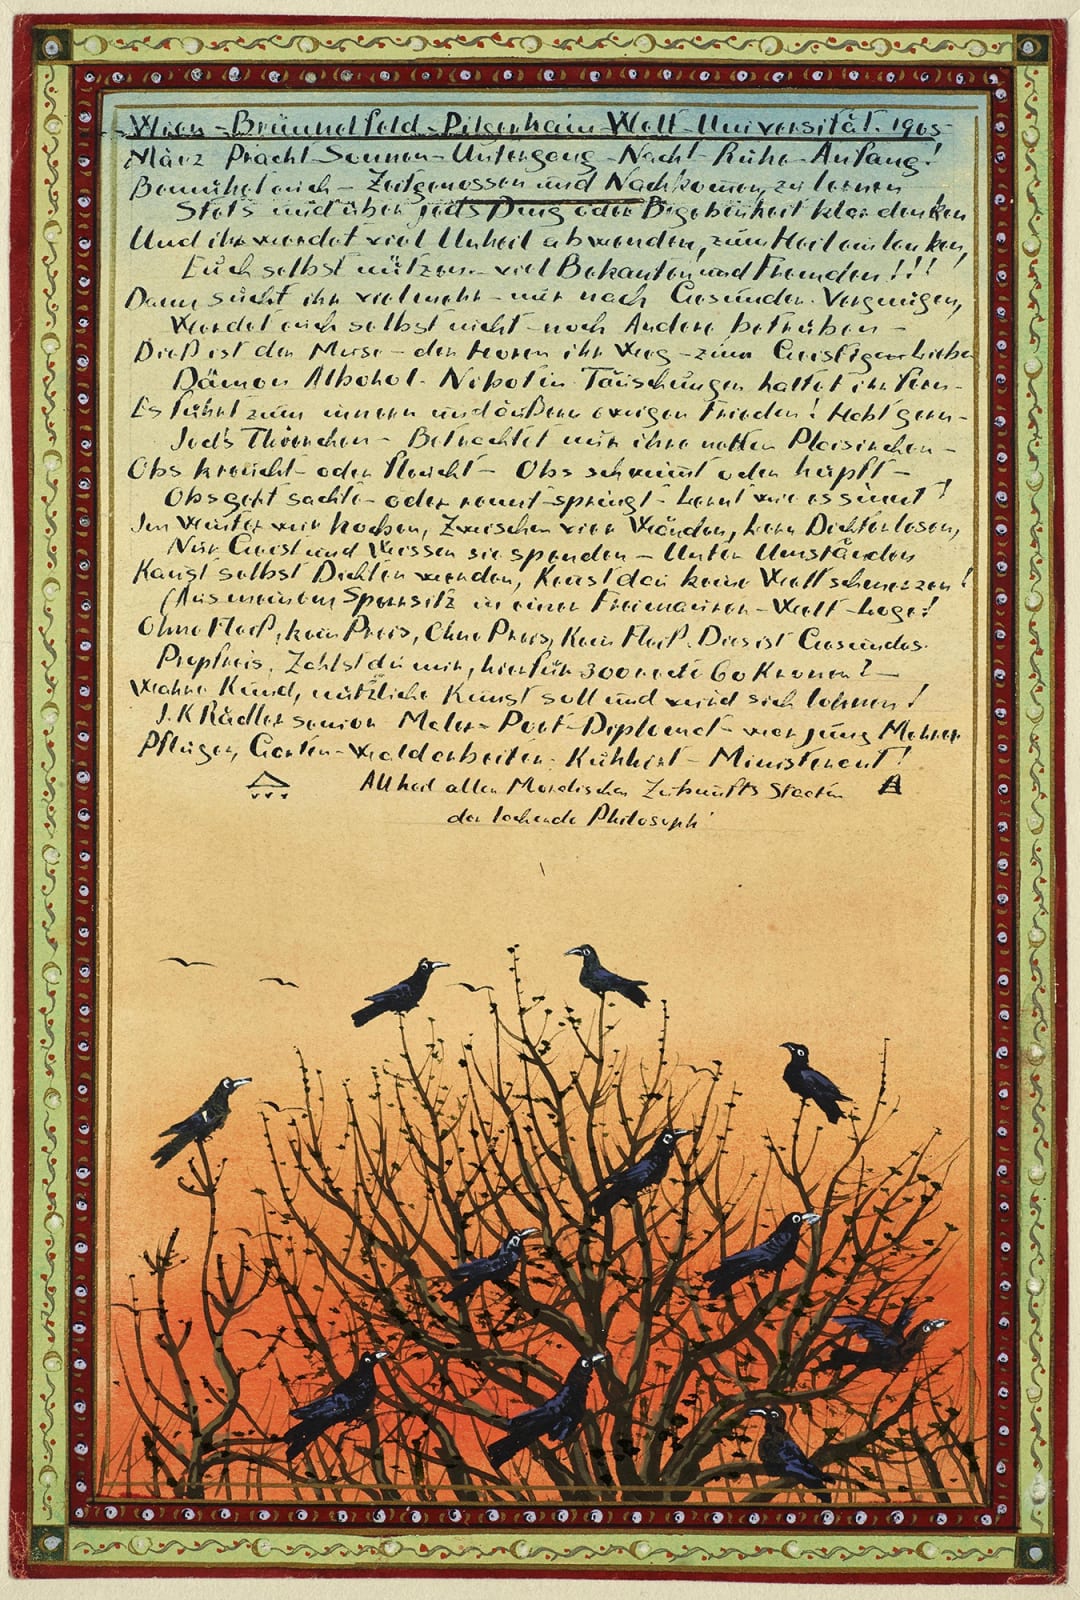 Wien - Brünnelfeld - Pilgerhain Welt - Universität. 1905
März Pracht-Sonnen-Untergang - Nacht-Ruhe-Anfang!
Bemühet euch - Zeitgenossen und Nachkomen, zu lernen
Stets und über jed's Ding oder Begebenheit klar denken
Und ihr werdet viel Unheil abwenden, zum Heil einlenken,
Euch selbst nützen - viel Bekanten und Fremden!!!
Dann sucht ihr vielmehr - nur nach Gesunden Vergnügen,
Werdet euch selbst nicht - noch Andere betrüben -
Dieß ist der Muse - der Horen ihr Weg - zum Geistigen Liebe
Dämon Alkohol - Nikotin Täuschungen haltet ihr fern -
Es führt zum innern und äußern ewigen Frieden! Habt gern -
Jed's Thierchen - Betrachtet nur ihre netten Plaisirchen -
Obs kreucht - oder fleucht - Obs schwimt oder hüpft -
Obs geht sachte - oder rennt - springt - Lernt wie es sinnt!
Im Winter wir hocken, Zwischen vier Wänden, kern Dichter lesen,
Nur Geist und Wissen sie spenden - Unter Umständen
Kanst selbst Dichter werden, Kenst du keine Weltschmerzen!
(Aus meinem Sperrsitz in einer Freimaurer-Welt-Loge!
Ohne Fleiß, kein Preis, Ohne Preis, Kein Fleiß. Dies ist Gesundes
Preßreis. Zahlst du mir, hierfür 300 rete 60 Kronen? -
Wahre Kund, nützliche Kunst soll und wird sich lohnen!
J. K Rädler senior Maler - Poet - Diplomat - vier jung Mehrer
Pfleger, Garten-Waldarbeiter - Kühhirt - Ministerent!
Allheil allen Mordischen Zukunfts Staaten A
der lachende Philosoph